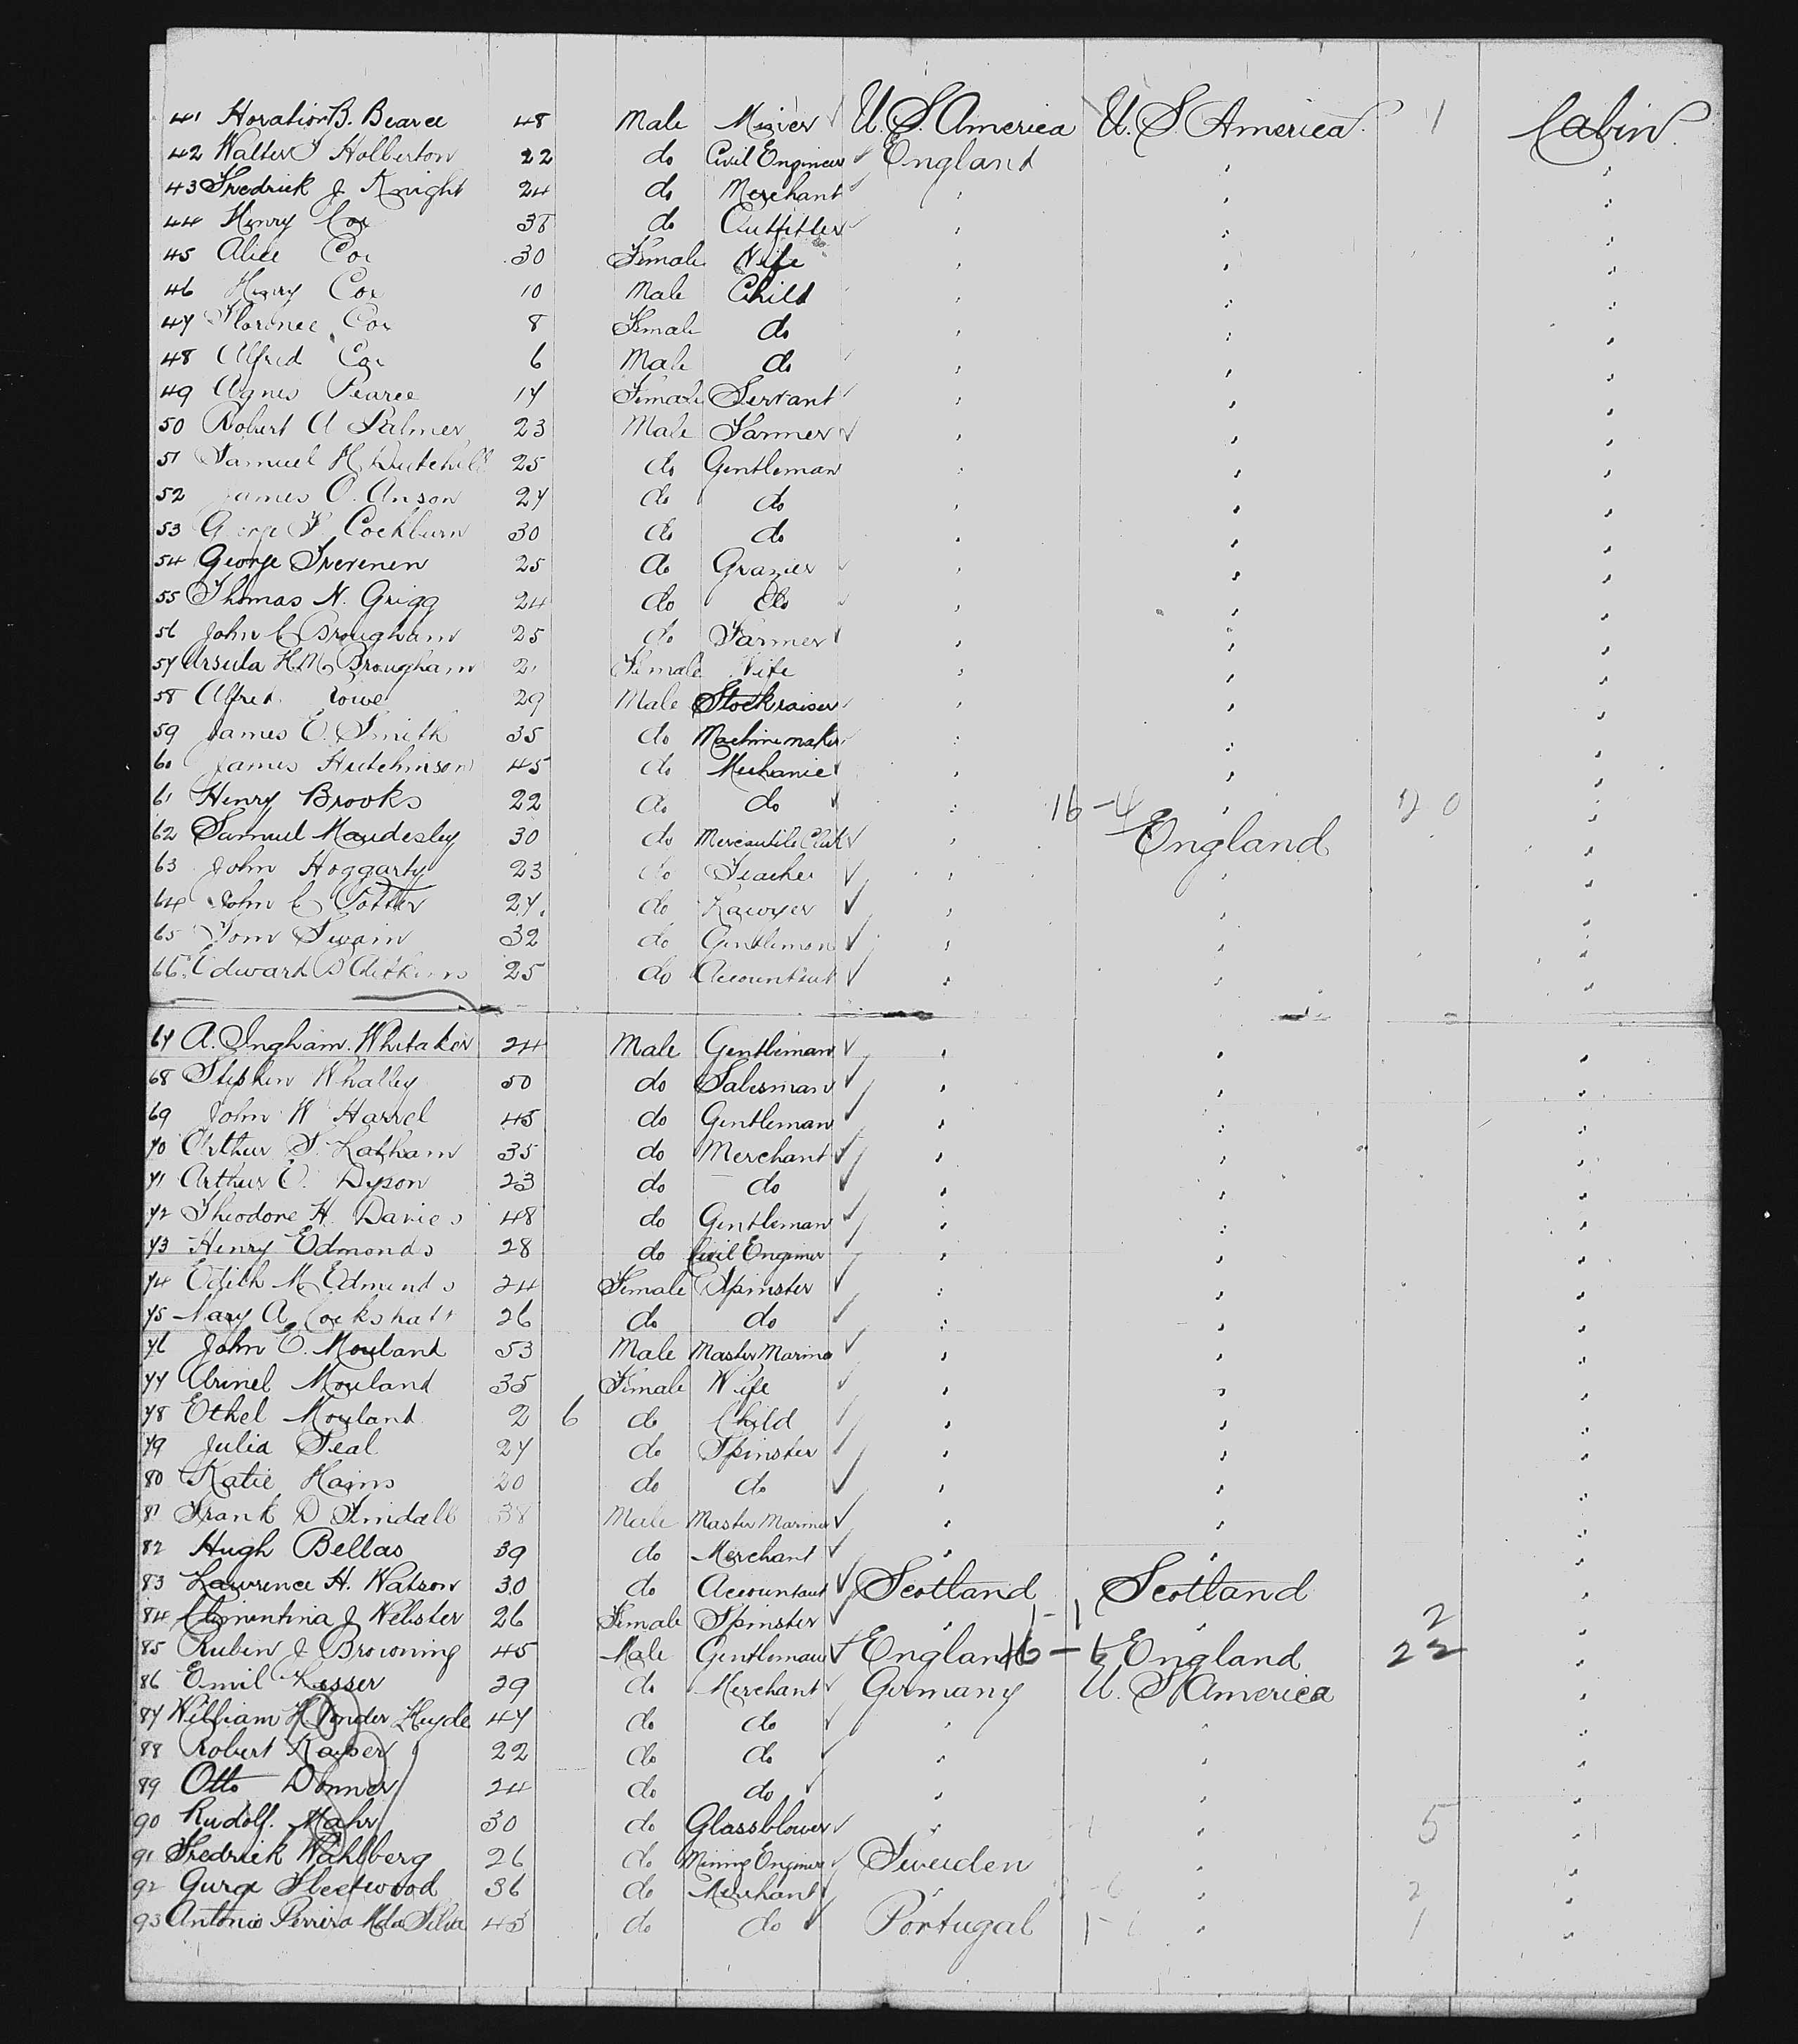 41 Horatio B. Bearce 48 Male Miner U. S. America U. S. America 1 Cabin
42 Walter J Holberton 22 do Civil Engineer England
43 Fredrick J. Knight 24 do Merchant
44 Henry Cox 38 do Outfitter
45 Alice Cox 30 Female Wife
46 Henry Cox 10 Male Child
47 Florence Cox 8 Female do
48 Alfred Cox 6 Male do
49 Agnes Pearce 17 Female Servant
50 Robert A Palmer 23 Male Farmer
51 Samuel H 25 do Gentleman
52 James O. Anson 27 do do
53 George F Cockburn 30 do do
54 George Trevenen 25 do Grazier
55 Thomas N. Grigg 24 do do
56 John C Brougham 25 do Farmer
57 Ursula H.M. Brougham 21 Female Wife
58 Alfred Rowe 29 Male Stockraiser
59 James E. Smith 35 do Machine maker
60 James Hutchinson 45 do Mechanic
61 Henry Brooks 22 do do 16-4 20
62 Samuel Maudesley 30 do Mercantile Clerk England
63 John Hoggarty 23 do Teacher
64 John C Potter 27 do Lawyer
65 Tom Swain 32 do Gentleman
66 Edward B Aitkens 25 do Accountant
67 A. Ingham Whitaker 24 Male Gentleman
68 Stephen Whalley 50 do Salesman
69 John W Harrel 45 do Gentleman
70 Arthur S. Latham 35 do Merchant
71 Arthur E. Dyson 23 do do
72 Theodore H. Davies 48 do Gentleman
73 Henry Edmonds 28 do Civil Engineer
74 Edith M Edmunds 24 Female Spinster
75 Mary A Cockshatt 26 do do
76 John E. Mouland 53 Male Master Mariner
77 Mouland 35 Female Wife
78 Ethel Mouland 2 6 do Child
79 Julia Seal 27 do Spinster
80 Katie Hains 20 do do
81 Frank D Tindall 38 Male Master Mariner
82 Hugh Bellas 39 do Merchant
83 Lawrence H. Watson 30 do Accountant Scotland Scotland
84 Clementina J Webster 26 Female Spinster 1-1 2
85 Rubin J Browning 45 Male Gentleman England 16-6 England 22
86 Emil Lesser 29 do Merchant Germany U. S America
87 William H Vonder Heyde 47 do do
88 Robert Kayser 22 do do
89 Otto Donner 24 do do
90 Rudolf. Mahr 30 do Glassblower 5
91 Fredrick Wahlberg 26 do Mining Engineer Sweden
92 Gurge Fleetwood 36 do Merchant 2
93 Antonio Perriro M da Silva 45 do do Portugal 1